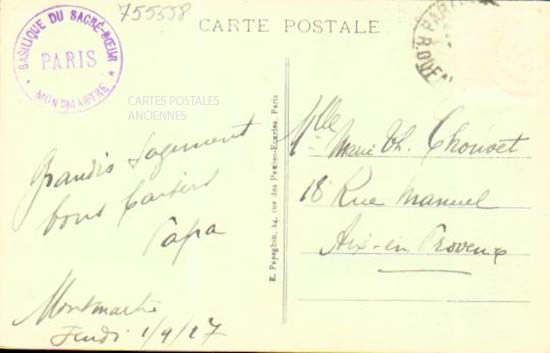 755558
CARTE POSTALE
BASILIQUE DU SACRÉ-CŒUR
PARIS
MONTMARTRE
CARTES POSTALES
ANCIENNES
Grandis sagement
bons baisers
Papa
Montmartre
Jeudi 1/9/27
E. Papeghin, 24, rue des Petites-Ecuries, Paris
Mlle
Marie Th. Chouvet
18 Rue Manuel
Aix-en Provence